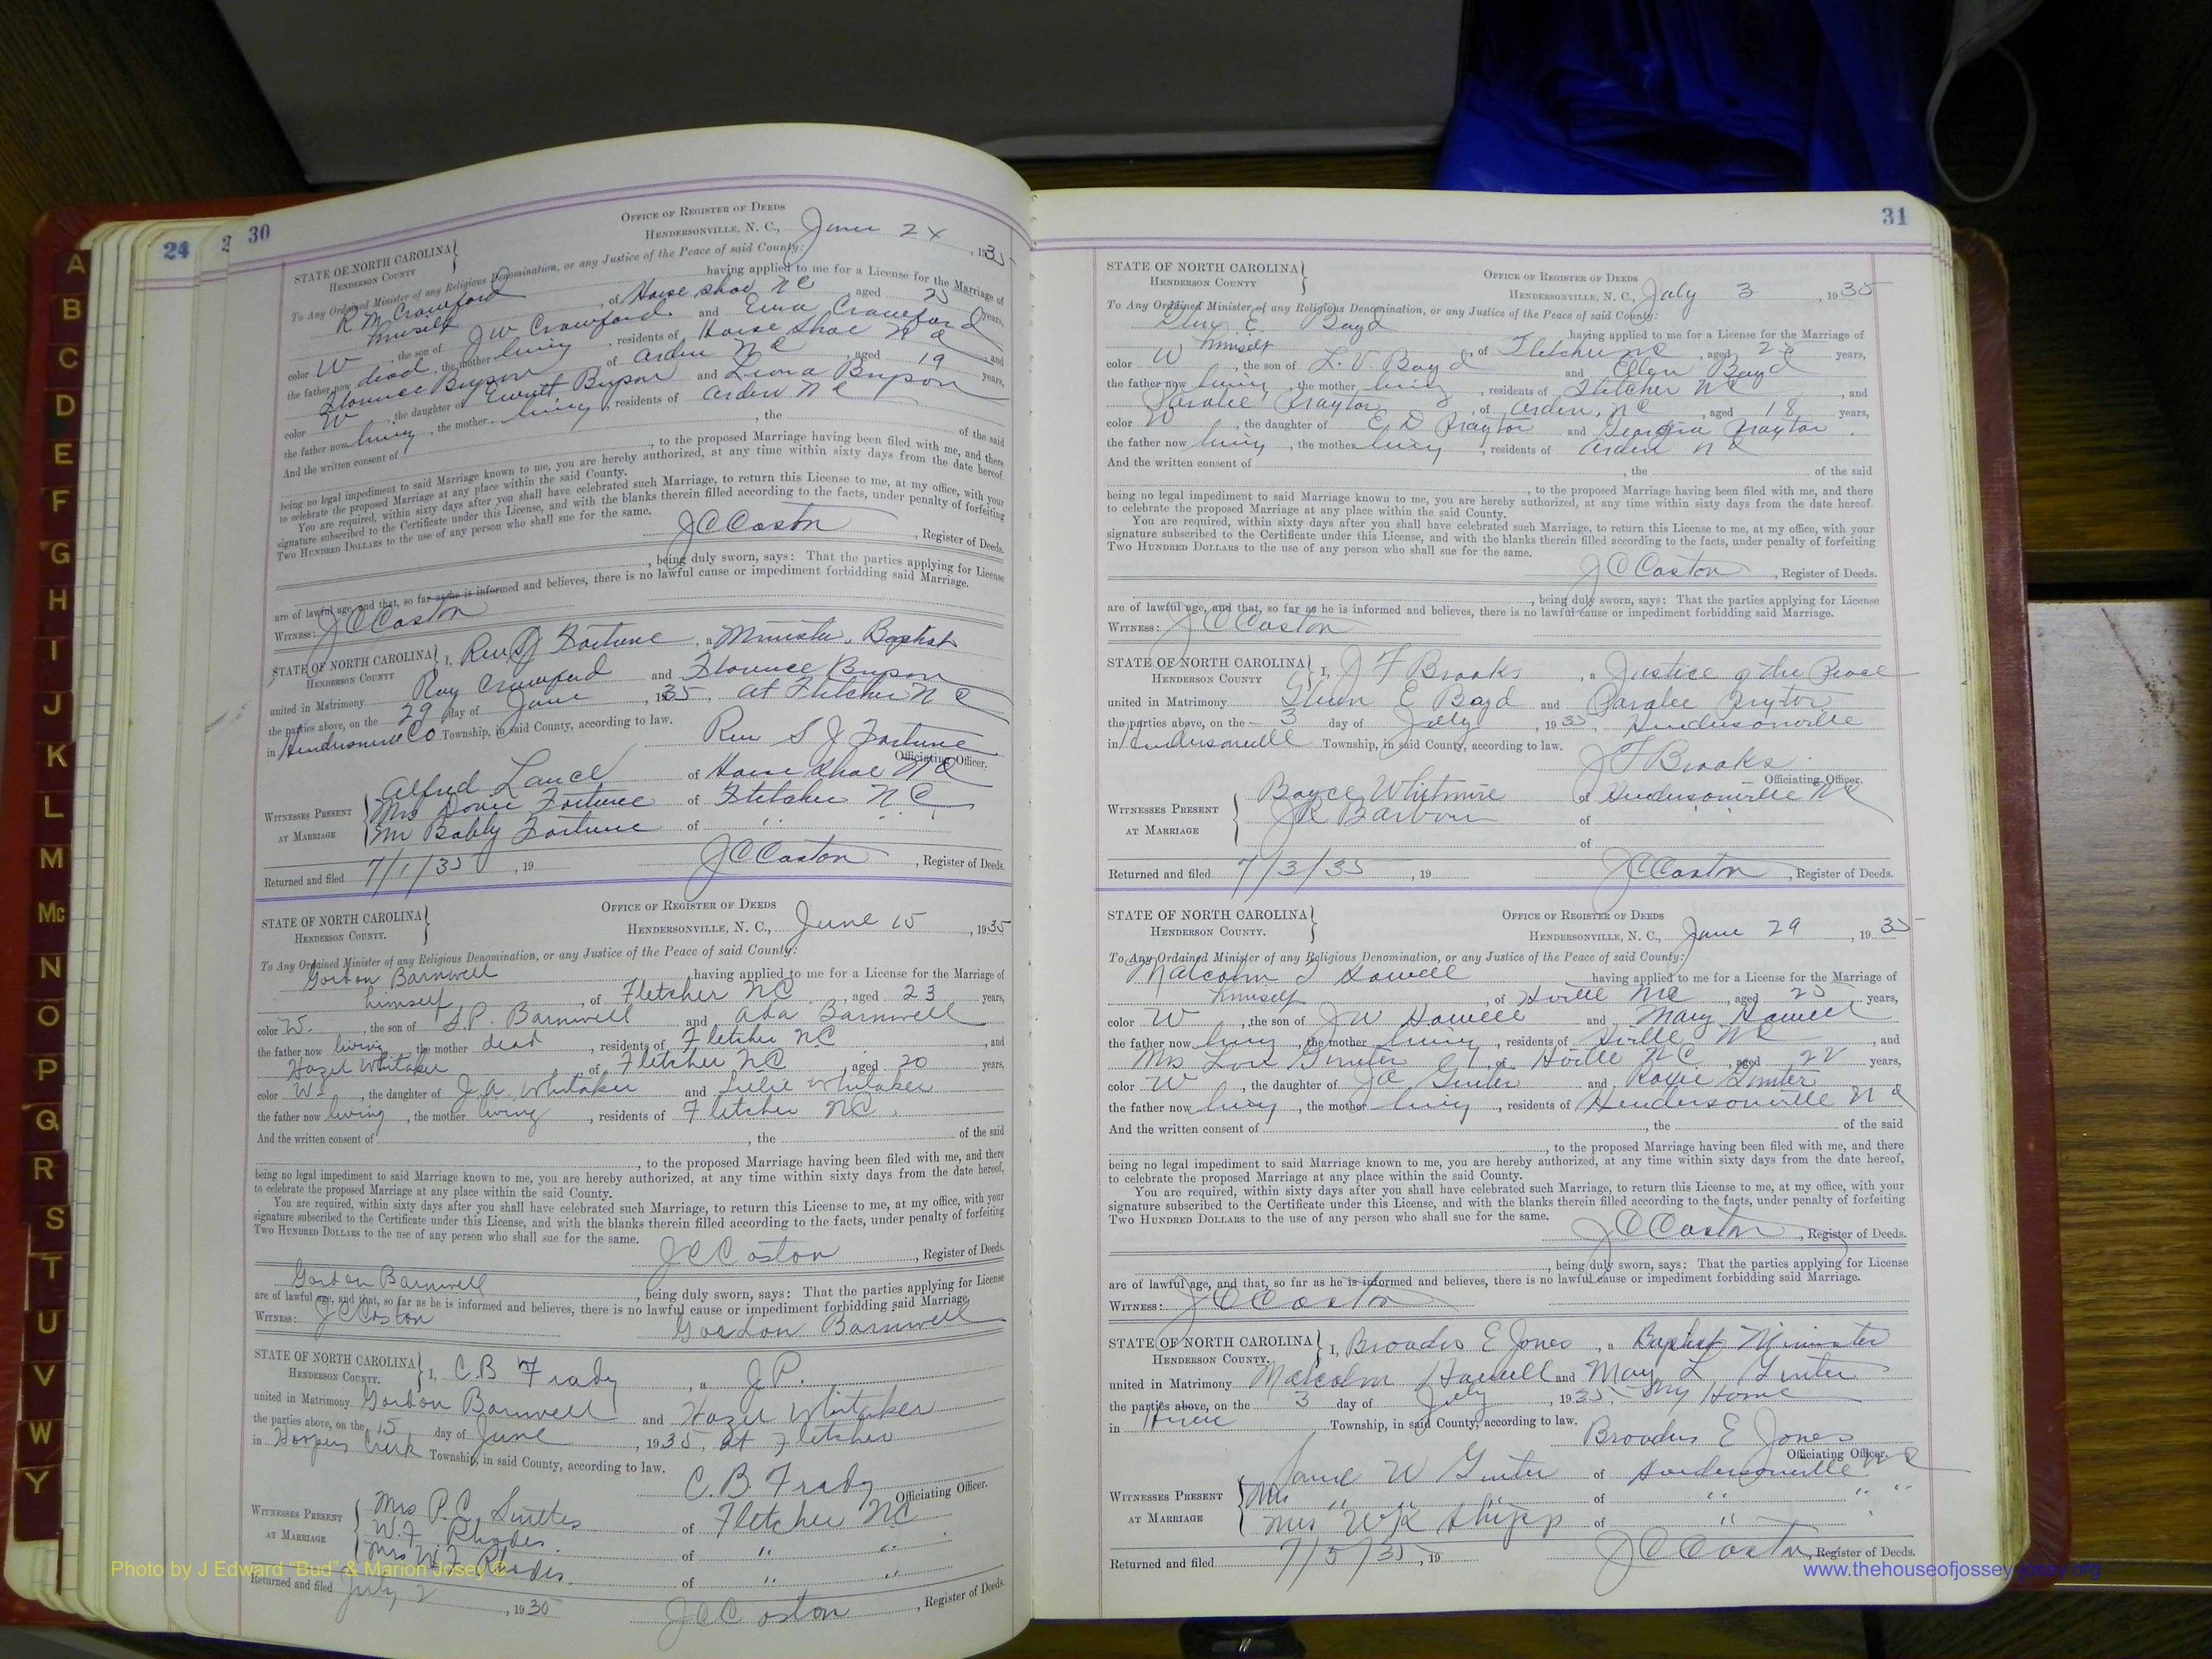 A
B
C
D
E
F
G
H
I
J
K
L
M
Mc
N
O
P
Q
R
S
T
U
V
W
Y
24
2
30
OFFICE OF REGISTER OF DEEDS
HENDERSONVILLE, N. C., June , 1935
STATE OF NORTH CAROLINA
HENDERSON COUNTY
To Any Ordained Minister of any Religious Denomination, or any Justice of the Peace of said County:
R M Crawford having applied to me for a License for the Marriage of
himself , of Horse Shoe NC aged 25 years,
color W , the son of J W Crawford and Crawford
the father now dead , the mother living , residents of Horse Shoe N C and
Florence Bryson of Arden N C aged 19 years,
color W the daughter of Everett Bryson and Leona Bryson
the father now living , the mother living , residents of Arden N C
And the written consent of , the of the said
, to the proposed Marriage having been filed with me, and there
being no legal impediment to said Marriage known to me, you are hereby authorized, at any time within sixty days from the date hereof
to celebrate the proposed Marriage at any place within the said County.
You are required, within sixty days after you shall have celebrated such Marriage, to return this License to me, at my office, with your
signature subscribed to the Certificate under this License, and with the blanks therein filled according to the facts, under penalty of forfeiting
TWO HUNDRED DOLLARS to the use of any person who shall sue for the same.
J C Coston , Register of Deeds.
, being duly sworn, says: That the parties applying for License
are of lawful age, and that, so far as he is informed and believes, there is no lawful cause or impediment forbidding said Marriage.
WITNESS: J C Coston
STATE OF NORTH CAROLINA I, Rev S J Fortune , a Minister, Baptist
HENDERSON COUNTY
united in Matrimony Roy Crawford and Florence Bryson
the parties above, on the 29 day of June , 1935, at Fletcher N C
in Hendersonville Co Township, in said County, according to law.
Rev S J Fortune
Officiating Officer.
WITNESSES PRESENT
AT MARRIAGE
Alfred Lance of Horse Shoe N C
Mrs Dovie Fortune of Fletcher N C
Mr Bobby Fortune of " "
Returned and filed 7/1/35 , 19 J C Coston , Register of Deeds.
OFFICE OF REGISTER OF DEEDS
STATE OF NORTH CAROLINA
HENDERSON COUNTY.
HENDERSONVILLE, N. C., June 15 , 1935
To Any Ordained Minister of any Religious Denomination, or any Justice of the Peace of said County:
Gordon Barnwell , having applied to me for a License for the Marriage of
himself , of Fletcher NC , aged 23 years,
color W. , the son of S.P. Barnwell and Ada Barnwell
the father now living , the mother dead , residents of Fletcher NC , and
Hazel Whitaker of Fletcher NC , aged 20 years,
color W. , the daughter of J.A. Whitaker and Lillie Whitaker
the father now living , the mother living , residents of Fletcher NC.
And the written consent of , the of the said
, to the proposed Marriage having been filed with me, and there
being no legal impediment to said Marriage known to me, you are hereby authorized, at any time within sixty days from the date hereof,
to celebrate the proposed Marriage at any place within the said County.
You are required, within sixty days after you shall have celebrated such Marriage, to return this License to me, at my office, with your
signature subscribed to the Certificate under this License, and with the blanks therein filled according to the facts, under penalty of forfeiting
TWO HUNDRED DOLLARS to the use of any person who shall sue for the same.
J C Coston , Register of Deeds.
Gordon Barnwell , being duly sworn, says: That the parties applying for License
are of lawful age, and that, so far as he is informed and believes, there is no lawful cause or impediment forbidding said Marriage.
WITNESS: J C Coston Gordon Barnwell
STATE OF NORTH CAROLINA I, C.B Frady , a J.P.
HENDERSON COUNTY.
united in Matrimony Gordon Barnwell and Hazel Whitaker
the parties above, on the 15 day of June , 1935, at Fletcher
in Hoopers Creek Township, in said County, according to law.
C. B. Frady
Officiating Officer.
WITNESSES PRESENT
AT MARRIAGE
Mrs P.C. of Fletcher NC
W.F. Rhodes. of " "
Mrs W F Rhodes. of " "
Returned and filed July 2 , 1930 J C Coston , Register of Deeds.
31
STATE OF NORTH CAROLINA
HENDERSON COUNTY
OFFICE OF REGISTER OF DEEDS
HENDERSONVILLE, N. C., July 3 , 1935
To Any Ordained Minister of any Religious Denomination, or any Justice of the Peace of said County:
Glenn E. Boyd having applied to me for a License for the Marriage of
himself , of Fletcher NC , aged years,
color W , the son of L. V. Boyd and Ellen Boyd
the father now living , the mother living , residents of Fletcher NC , and
Paralee Prayter , of Arden, NC , aged 18 years,
color W , the daughter of E D Prayter and Georgia Prayter .
the father now living , the mother living , residents of Arden N C
And the written consent of , the of the said
, to the proposed Marriage having been filed with me, and there
being no legal impediment to said Marriage known to me, you are hereby authorized, at any time within sixty days from the date hereof
to celebrate the proposed Marriage at any place within the said County.
You are required, within sixty days after you shall have celebrated such Marriage, to return this License to me, at my office, with your
signature subscribed to the Certificate under this License, and with the blanks therein filled according to the facts, under penalty of forfeiting
TWO HUNDRED DOLLARS to the use of any person who shall sue for the same.
J C Coston , Register of Deeds.
, being duly sworn, says: That the parties applying for License
are of lawful age, and that, so far as he is informed and believes, there is no lawful cause or impediment forbidding said Marriage.
WITNESS: J C Coston
STATE OF NORTH CAROLINA I, J F Brooks , a Justice of the Peace
HENDERSON COUNTY
united in Matrimony Glenn E Boyd and Paralee Pryter
the parties above, on the 3 day of July , 1935, Hendersonville
in Hendersonville Township, in said County, according to law.
J F Brooks
Officiating Officer.
WITNESSES PRESENT
AT MARRIAGE
Boyce Whitmire of Hendersonville NC
J R Barbour of
of
Returned and filed 7/3/35 , 19 J C Coston , Register of Deeds.
STATE OF NORTH CAROLINA
HENDERSON COUNTY.
OFFICE OF REGISTER OF DEEDS
HENDERSONVILLE, N. C., June 29 , 1935
To Any Ordained Minister of any Religious Denomination, or any Justice of the Peace of said County:
Malcolm Howell having applied to me for a License for the Marriage of
himself , of Hville NC , aged 25 years,
color W , the son of J W Howell and Mary Howell
the father now living , the mother living , residents of Hville NC , and
Ginter of Hville NC , aged 22 years,
color W , the daughter of Ginter and Ginter
the father now living , the mother living , residents of Hendersonville N C
And the written consent of , the of the said
, to the proposed Marriage having been filed with me, and there
being no legal impediment to said Marriage known to me, you are hereby authorized, at any time within sixty days from the date hereof,
to celebrate the proposed Marriage at any place within the said County.
You are required, within sixty days after you shall have celebrated such Marriage, to return this License to me, at my office, with your
signature subscribed to the Certificate under this License, and with the blanks therein filled according to the facts, under penalty of forfeiting
TWO HUNDRED DOLLARS to the use of any person who shall sue for the same.
J C Coston , Register of Deeds.
, being duly sworn, says: That the parties applying for License
are of lawful age, and that, so far as he is informed and believes, there is no lawful cause or impediment forbidding said Marriage.
WITNESS: J C Coston
STATE OF NORTH CAROLINA I, Broadus E Jones , a Baptist Minister
HENDERSON COUNTY.
united in Matrimony Malcolm Howell and Mary L Ginter
the parties above, on the 3 day of July , 1935, My Home
in Township, in said County, according to law.
Broadus E Jones
Officiating Officer.
WITNESSES PRESENT
AT MARRIAGE
W Ginter of Hendersonville NC
Mrs " " " of " " "
Mrs W K Shipp of "
Returned and filed 7/5/35 , 19 J C Coston , Register of Deeds.
Photo by J Edward "Bud" & Marion Josey ©
www.thehouseofjossey-josey.org